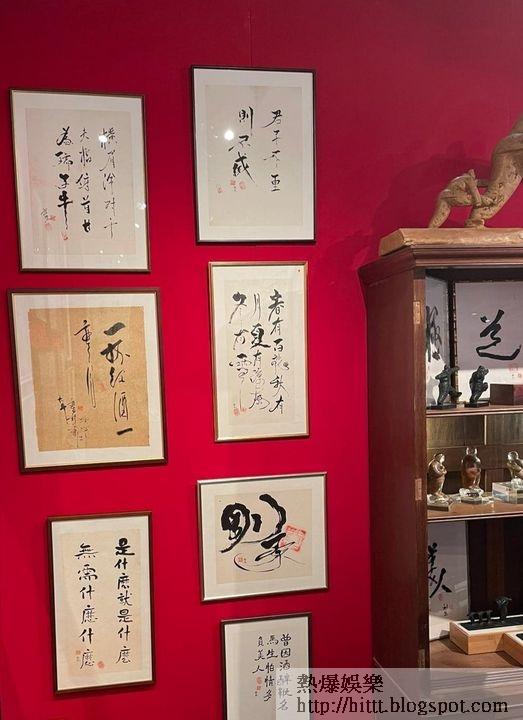 橫眉冷对千
夫指俯首甘
為孺子牛
君子不重
則不威
一杯红酒一
春有百花秋有
月夏有涼風
冬有雪
是什麽就是什麽
無需什麽什麽
曾因酒醉鞭名
馬生怕情多
負美人
道
美人
熱爆娛樂
http://hittt.blogspot.com